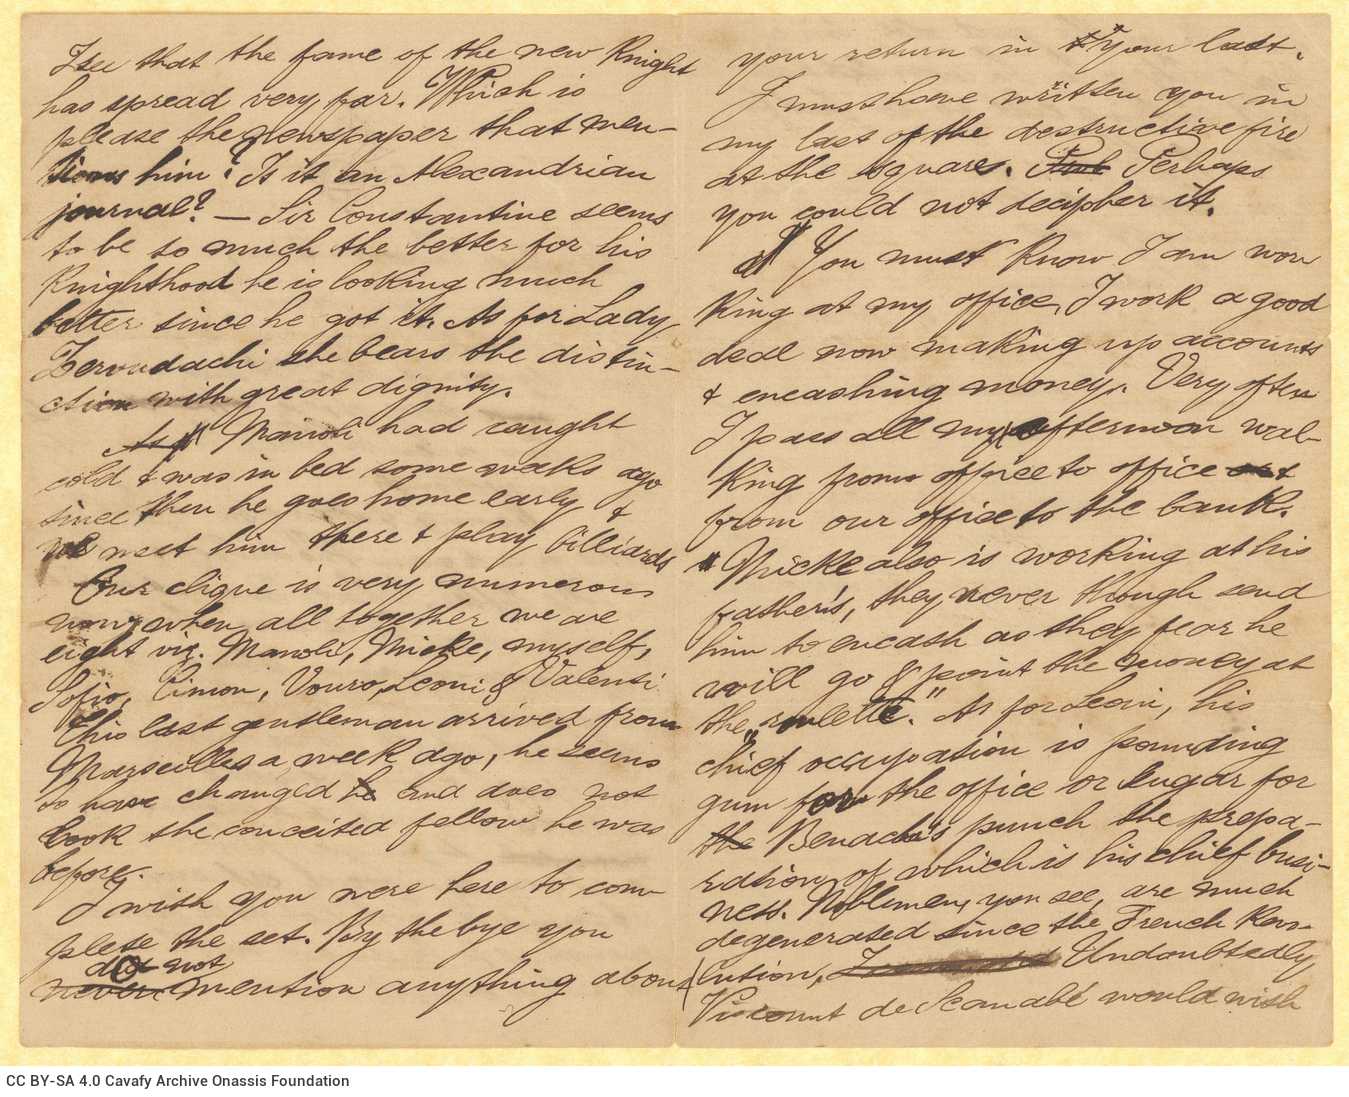 I see that the fame of the new Knight
has spread very far. Which is
please the newspaper that men-
tions him? Is it an Alexandrian
journal? — Sir Constantine seems
to be so much the better for his
Knighthood he is looking much
better since he got it. As for Lady
Zervudachi she bears the distin-
ction with great dignity.
Manoli had caught
cold & was in bed some weeks ago
since then he goes home early &
we meet him there & play billiards
Our clique is very numerous
now, when all together we are
eight viz. Manoli, Micke, myself,
Sofio, Cimon, Vouro, Leoni & Valensi
This last gentleman arrived from
Marseilles a week ago, he seems
to have changed and does not
look the conceited fellow he was
before.
I wish you were here to com-
plete the set. By the bye you
did not
never mention anything about
your return in your last.
I must have written you in
my last of the destructive fire
at the square. Perhaps
you could not decipher it.
You must know I am wor-
king at my office, I work a good
deal now making up accounts
& encashing money. Very often
I pass all my afternoon wal-
king from office to office &
from our office to the bank.
Micke also is working at his
father's, they never though send
him to encash as they fear he
will go & point the money at
the "roulette." As for Leoni, his
chief occupation is pounding
gum for the office or sugar for
the Benachi's punch the prepa-
ration of which is his chief busi-
ness. Noblemen, you see, are much
degenerated since the French Revo-
lution, Undoubtedly
Viscount de Scanabé would wish
CC BY-SA 4.0 Cavafy Archive Onassis Foundation